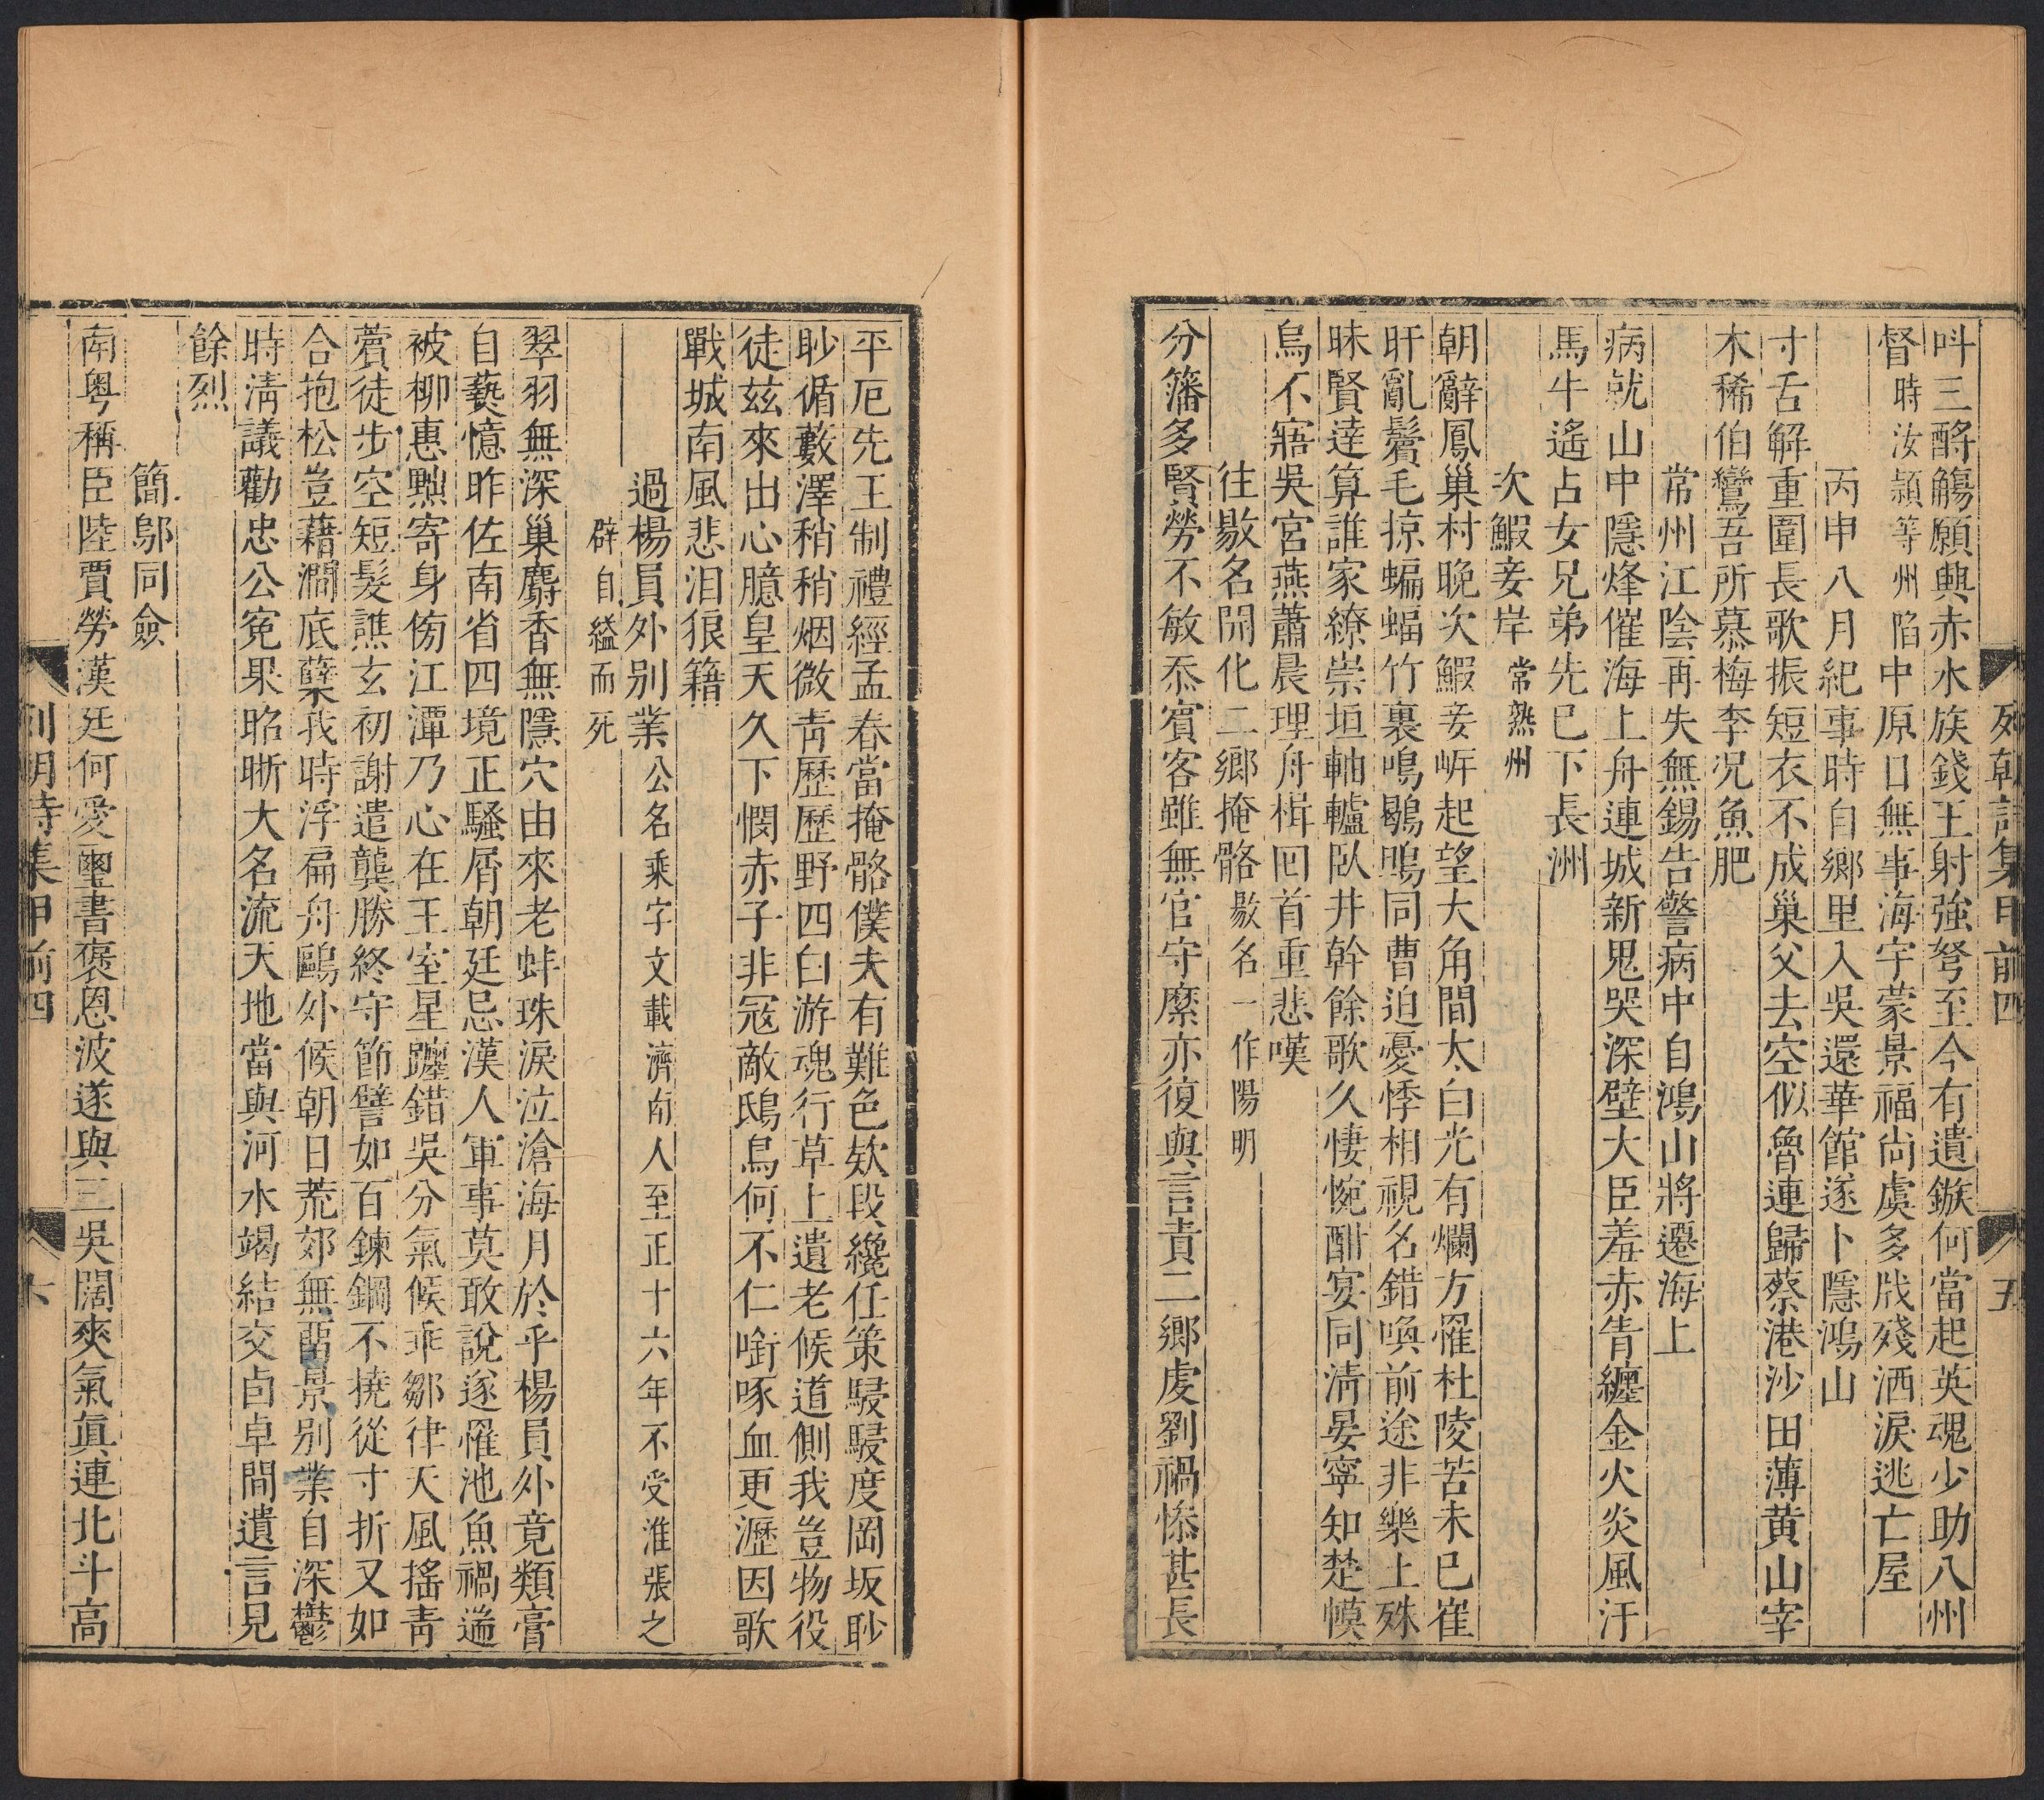 列朝詩集甲前四　五
呌三酹觴願與赤水族錢王射強弩至今有遺鏃何當起英魂少助八州
督時汝潁等州陷中原口無事海宇蒙景福尙虞多戕殘洒淚逃亡屋
丙申八月紀事時自鄉里入吳還華館遂卜隱鴻山
寸舌解重圍長歌振短衣不成巢父去空似魯連歸蔡港沙田薄黃山宰
木稀伯鸞吾所慕梅李况魚肥
常州江陰再失無錫告警病中自鴻山將遷海上
病就山中隱烽催海上舟連城新鬼哭深壁大臣羞赤眚纏金火炎風汗
馬牛遙占女兄弟先巳下長洲
次鰕妾岸常熟州
朝辭鳳巢村晚次鰕妾岍起望大角間太白光有爛方罹杜陵苦未巳崔
旰亂鬢毛掠蝙蝠竹裏鳴鶡鴠同曹迫憂悸相視名錯喚前途非樂上殊
昧賢達算誰家繚崇垣軸轤臥井幹餘歌久悽惋酣宴同淸晏寧知楚幙
烏不寤吳宮燕蕭晨理舟楫囘首重悲嘆
往敭名開化二鄉掩骼敭名一作陽明
分籓多賢勞不敏忝賓客雖無官守縻亦復與言責二鄉虔劉禍慘甚長
平厄先王制禮經孟春當掩骼僕夫有難色欵段纔任策駸駸度岡坂眇
眇循藪澤稍稍烟微靑歷歷野四白游魂行草上遺老候道側我豈物役
徒茲來出心臆皇天久下憫赤子非冦敵鴟烏何不仁啣啄血更瀝因歌
戰城南風悲泪狼籍
過楊員外別業公名乘字文載濟南人至正十六年不受淮張之
辟自縊而死
翠羽無深巢麝香無隱穴由來老蚌珠淚泣滄海月於乎楊員外竟類膏
自爇憶昨佐南省四境正騷屑朝廷忌漢人軍事莫敢說遂罹池魚禍遄
被柳惠黜寄身傍江潭乃心在王室星躔錯吳分氣候乖鄒律天風搖靑
薋徒步空短髮譙玄初謝遣龔勝終守節譬如百鍊鋼不撓從寸折又如
合抱松豈藉澗底蘖我時浮扁舟鷗外候朝日荒郊無留景別業自深鬱
時淸議勸忠公寃果昭晣大名流天地當與河水竭結交卣卓間遺言見
餘烈
簡鄔同僉
南粤稱臣陸賈勞漢廷何愛璽書褒恩波遂與三吳闊爽氣眞連北斗高
列朝詩集甲前四　六